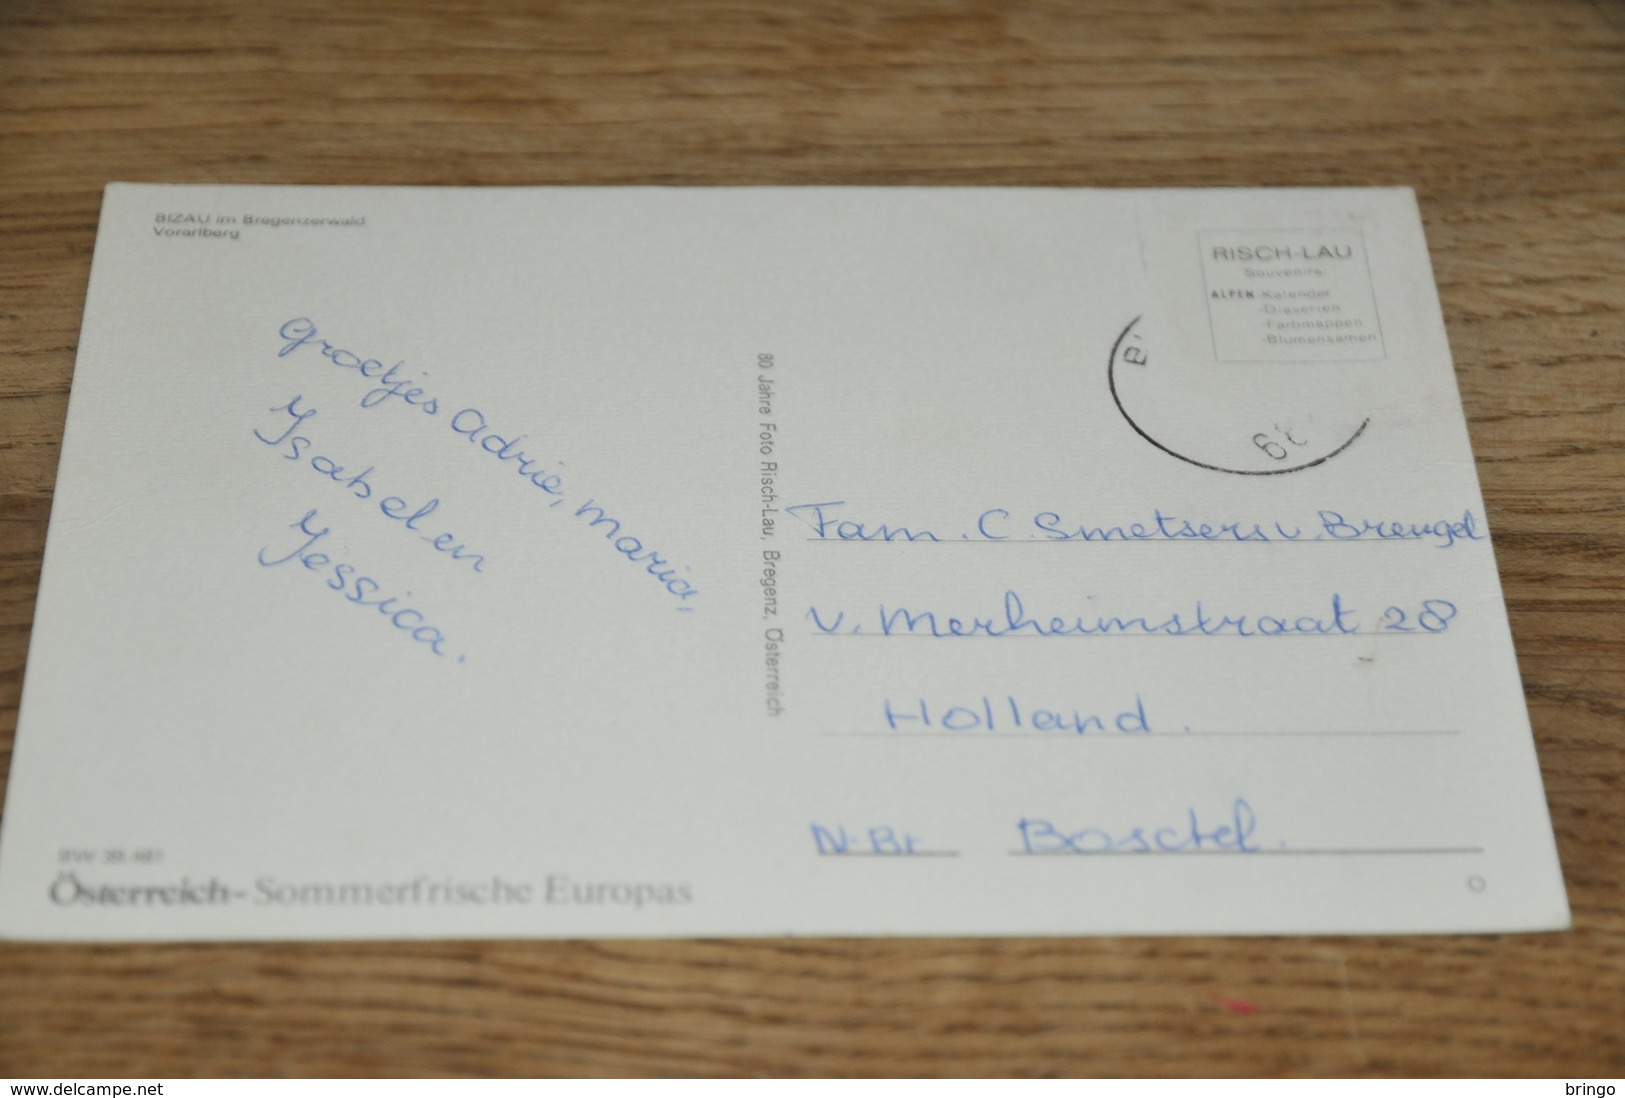 BIZAU im Bregenzerwald
Vorarlberg
RISCH-LAU
Souvenirs
ALPEN-Kalender
-Diaserien
-Farbmappen
-Blumensamen
groetjes Adrie, Maria,
Ysabel en
Yessica.
80 Jahre Foto Risch-Lau, Bregenz, Österreich
Fam. C. Smetsers v. Breugel
v. Merheimstraat 28
Holland.
N-Br Boxtel.
Österreich-Sommerfrische Europas
delcampe.net
bringo